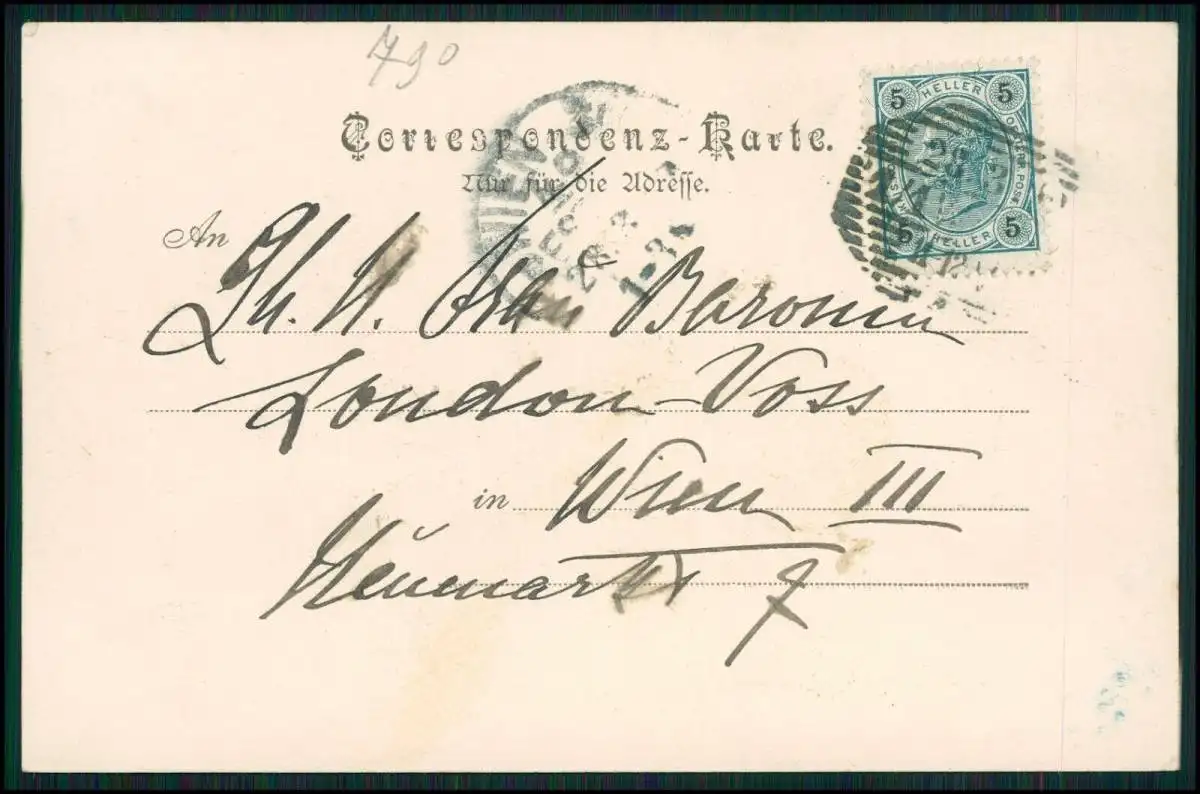 790
Correspondenz-Karte.
Nur für die Adresse.
5 HELLER 5
5 HELLER 5
WIEN
An
Baronin
London-Voss
in Wien III
Heumarkt 7